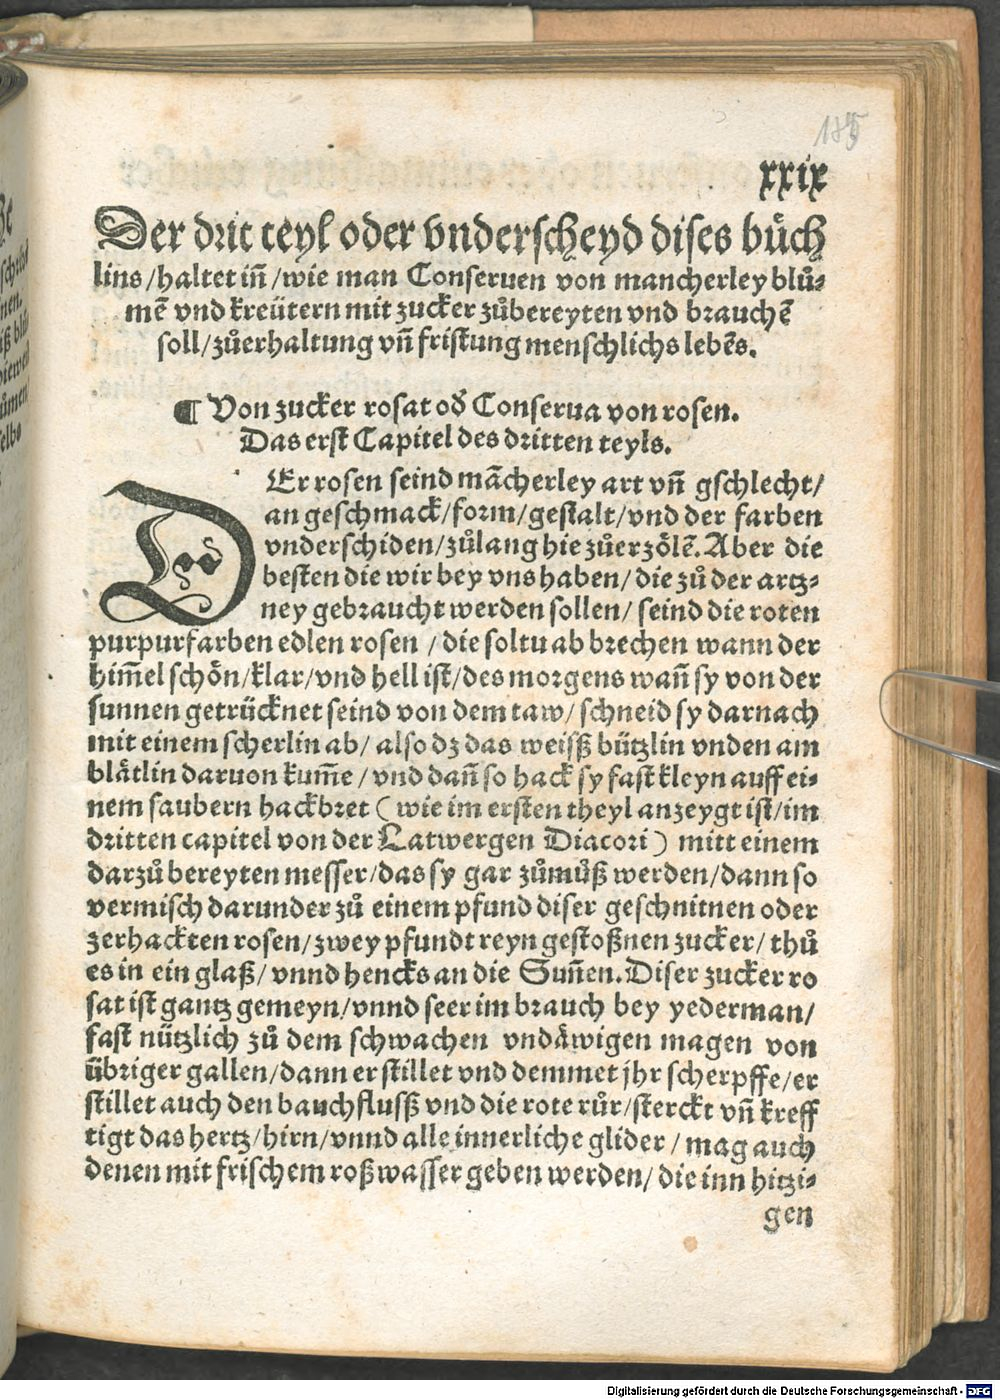 185
xxix
Der drit teyl oder vnderscheyd dises bůch
lins/haltet iñ/wie man Conseruen von mancherley blů-
mẽ vnd kreütern mit zucker zůbereyten vnd brauchẽ
soll/zůerhaltung vñ fristung menschlichs lebẽs.
¶ Von zucker rosat oď Conserua von rosen.
Das erst Capitel des dritten teyls.
DEr rosen seind mãcherley art vñ gschlecht/
an geschmack/form/gestalt/vnd der farben
vnderschiden/zůlang hie zůerzölẽ. Aber die
besten die wir bey vns haben/die zů der artz-
ney gebraucht werden sollen/ seind die roten
purpurfarben edlen rosen /die soltu ab brechen wann der
him̃el schön/klar/vnd hell ist/des morgens wañ sy von der
sunnen getrücknet seind von dem taw/ schneid sy darnach
mit einem scherlin ab/ also dz das weisß bützlin vnden am
blätlin daruon kum̃e /vnd dañ so hack sy fast kleyn auff ei-
nem saubern hackbret (wie im ersten theyl anzeygt ist/im
dritten capitel von der Latwergen Diacori) mitt einem
darzů bereyten messer/das sy gar zůmůß werden/dann so
vermisch darunder zů einem pfund diser geschnitnen oder
zerhackten rosen/zwey pfundt reyn gestoßnen zucker/ thů
es in ein glaß/ vnnd hencks an die Suñen. Diser zucker ro
sat ist gantz gemeyn/vnnd seer im brauch bey yederman/
fast nützlich zů dem schwachen vndäwigen magen von
übriger gallen/dann er stillet vnd demmet jhr scherpffe/er
stillet auch den bauchflusß vnd die rote růr/sterckt vñ kreff
tigt das hertz/hirn/vnnd alle innerliche glider /mag auch
denen mit frischem roßwasser geben werden/ die inn hitzi-
gen
Digitalisierung gefördert durch die Deutsche Forschungsgemeinschaft - DFG